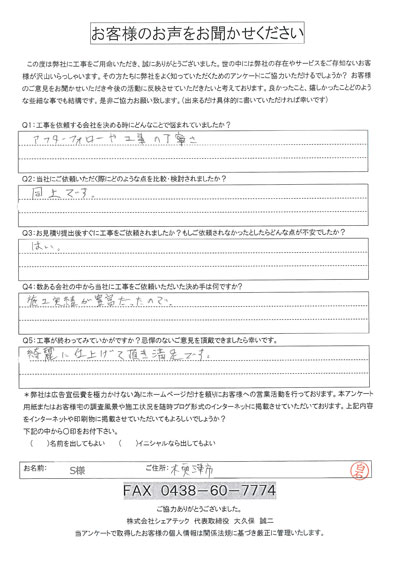 お客様のお声をお聞かせください
この度は弊社に工事をご用命いただき、誠にありがとうございます。世の中には弊社の存在やサービスをご存知ないお客
様が沢山いらっしゃいます。その方たちに弊社をよく知っていただくためのアンケートにご協力いただけるでしょうか? お客様
のご意見をお聞かせいただき今後の活動に反映させていただきたいと考えております。良かったこと、嬉しかったことどのよう
な些細な事でも結構です。是非ご協力お願い致します。(出来るだけ具体的に書いていただければ幸いです)
Q1:工事を依頼する会社を決める時にどんなことで悩まれていましたか?
アフターフォローや工事の丁寧さ
Q2:当社にご依頼いただく際にどのような点を比較・検討されましたか?
同上です。
Q3:お見積り提出後すぐに工事をご依頼されましたか?もしご依頼されなかったとしたらどんな点が不安でしたか?
はい。
Q4:数ある会社の中から当社に工事をご依頼いただいた決め手は何ですか?
施工実績が豊富だったので。
Q5:工事が終わってみていかがですか?忌憚のないご意見を頂戴できましたら幸いです。
綺麗に仕上げて頂き満足です。
*弊社は広告宣伝費を極力かけない為にホームページだけを頼りにお客様への営業活動を行っております。本アンケート
用紙またはお客様宅の調査風景や施工状況を随時ブログ形式のインターネットに掲載させていただいております。上記内容
をインターネットや印刷物に掲載させていただいてもよろしいでしょうか?
下記の中から〇印をお付下さい。
( )名前を出してもよい ( )イニシャルなら出してもよい
お名前: S様 ご住所: 木更津市
FAX 0438-60-7774
ご協力ありがとうございました。
株式会社シェアテック 代表取締役 大久保 誠二
当アンケートで取得したお客様の個人情報は関係法規に基づき厳正に管理いたします。